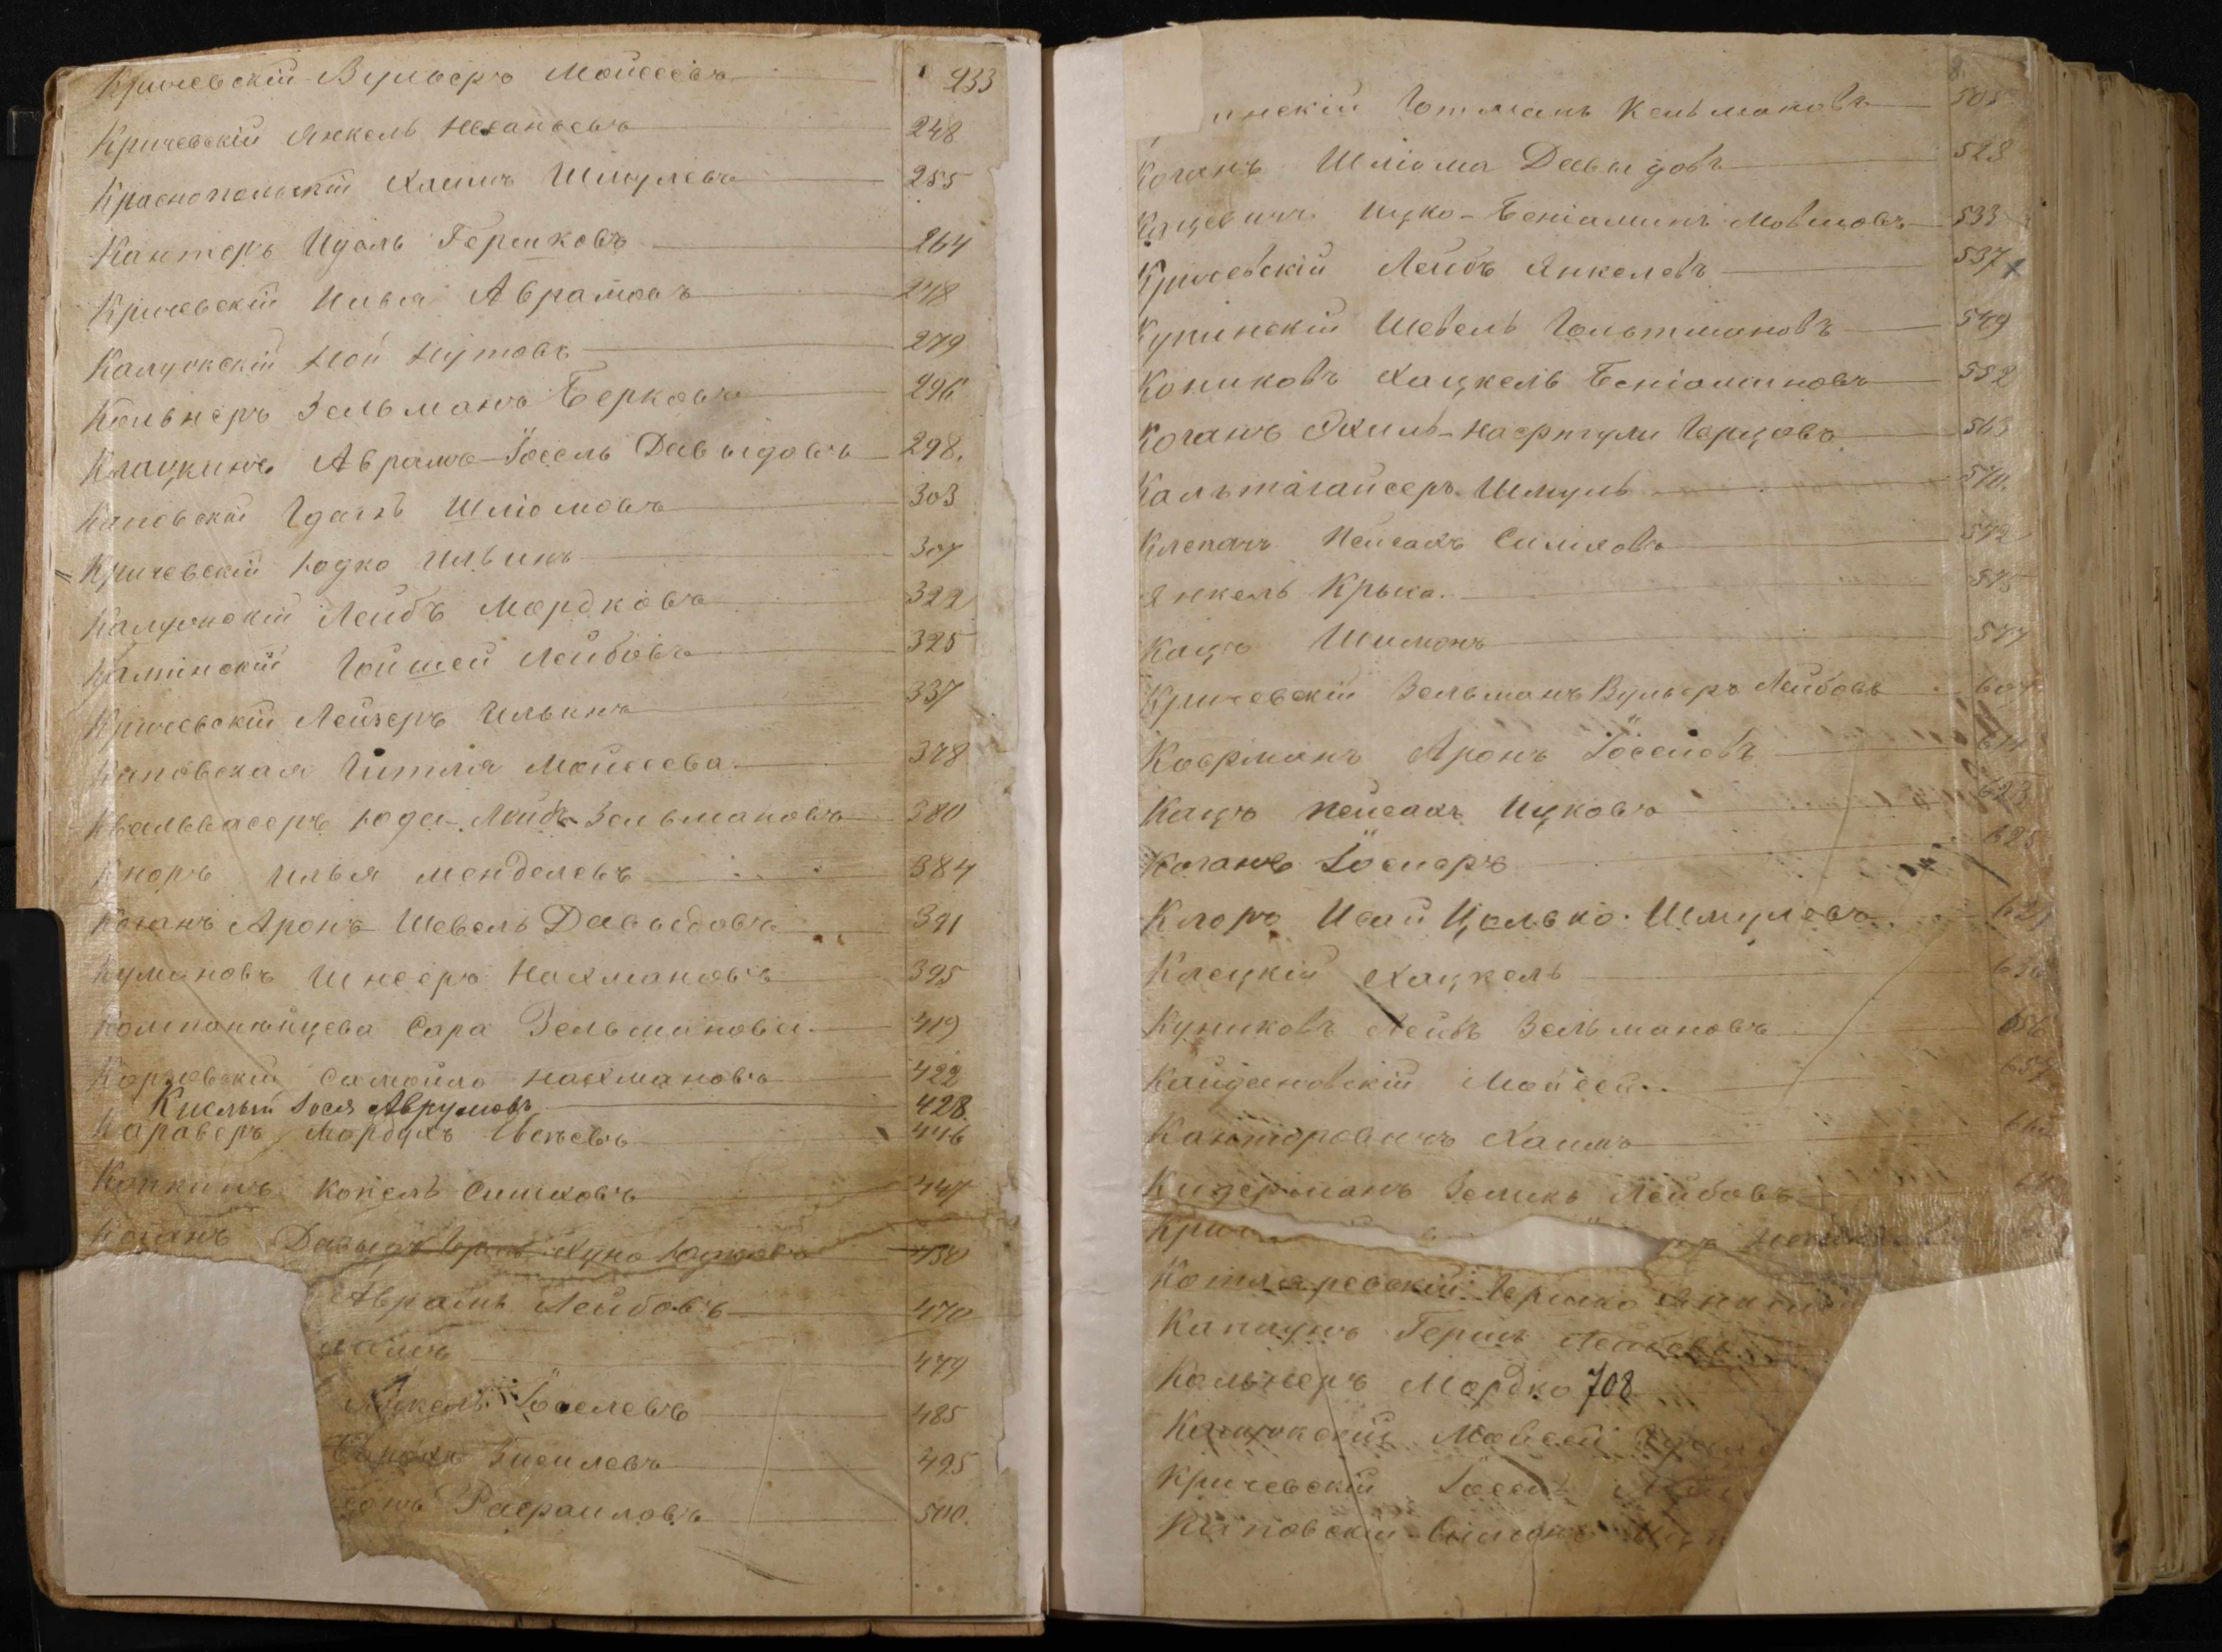 Кричевскій Вульфъ Мойсеевъ 233
Кричевскій Янкель Неханьевъ 248
Краснопольскій Хаимъ Шмулевъ 255
Канторъ Идель Гершковъ 264
Кричевскій Илья Аврамовъ 278
Калужскій Ной Нутовъ 279
Кельнеръ Зельманъ Берковъ 296
Клацкинъ Аврамъ-Іосель Давыдовъ 298.
Каповскій Гдаль Шліомовъ 303
Кричевскій Юдко Ильинъ 307
Калужскій Лейбъ Мордковъ 322
Каминскій Гойшей Лейбовъ 325
Кричевскій Лейзеръ Ильинъ 337
Каповская Гитля Мойсеева 378
Квальвасеръ Юда-Лейбъ Зельмановъ 380
Кноръ Илья Менделевъ 384
Коганъ Аронъ Шевель Давыдовъ 391
Кумановъ Шнееръ Нахмановъ 395
Компанійцева Сара Зельманова 419
Коржевскій Самойло Нахмановъ 422
Кислый Іося Аврумовъ 428
Караверъ Мордухъ Евсѣевъ 446
Копкинъ Копель Симховъ 447
Коганъ Давыдъ Хуна Юдковъ 450
Аврамъ Лейбовъ 470
479
Янкель Іоселевъ 485
Борохъ 495
Рафаиловъ 500.
8.
инскій Готманъ Кельмановъ 505
Коганъ Шліома Давыдовъ 528
Кацевичъ Ицко-Беніаминъ Мовшовъ 533
Кричевскій Лейбъ Янкелевъ 537
Купинскій Шевель Гольтмановъ 549
Копиковъ Хацкель Беніаминовъ 552
Коганъ Нафтули Герцовъ 563
Кальтгайсеръ Шмуль 570.
Клепачъ Пейсахъ Симховъ 572
Янкель Крыка. 575
Кацъ Шимонъ 577
Кричевскій Зельманъ Вульфъ Лейбовъ 607
Кофманъ Аронъ Іоселевъ 614
Кацъ Пейсахъ Ицковъ 623
Коганъ Іосифъ 625
Клоръ Исай Цалько Шмулевъ 629
Клецкій Хацкель
Куниковъ Лейбъ Зельмановъ 656
Кайдановскій Мойсей 657
Канторовичъ Хаимъ
Кидерманъ Зеликъ Лейбовъ
Котляревскій Гершко
Капланъ Гершъ Лейбовъ
Кельнеръ Мордко 708
Мовсей
Кричевскій Іосель
Каповскій Симонъ